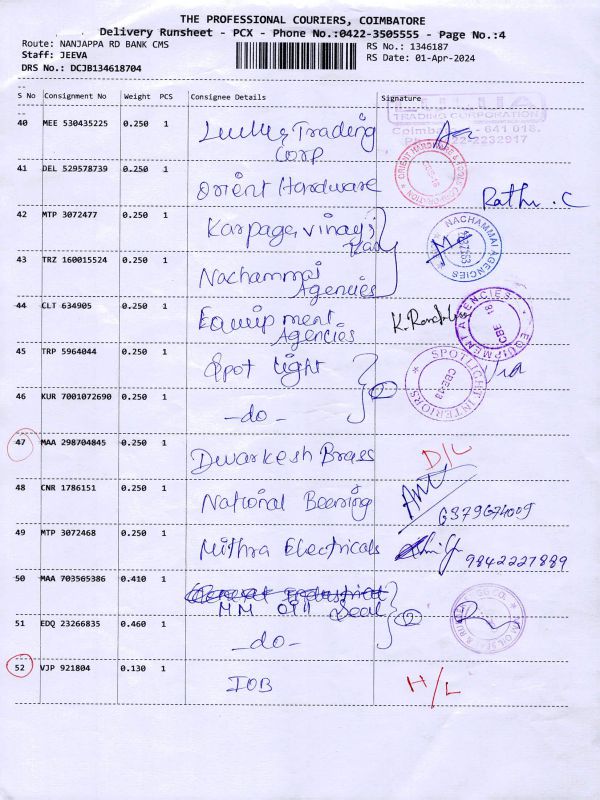 THE PROFESSIONAL COURIERS, COIMBATORE
Delivery Runsheet - PCX - Phone No.:0422-3505555 - Page No.:4
Route: NANJAPPA RD BANK CMS
RS No.: 1346187
Staff: JEEVA
RS Date: 01-Apr-2024
DRS No.: DCJB134618704
S No Consignment No Weight PCS Consignee Details Signature
TRADING CORPORATION
Coimbatore - 641 018.
40 MEE 530435225 0.250 1 Trading
Corp
41 DEL 529578739 0.250 1 Orient Hardware
42 MTP 3072477 0.250 1 Karpaga Vinayi
NACHAMMAI AGENCIES
43 TRZ 160015524 0.250 1 Nachammai
Agencies
44 CLT 634905 0.250 1 Equipment
Agencies
EQUIPMENT AGENCIES
CBE 18
45 TRP 5964044 0.250 1 Spot light
SPOTLIGHT INTERIORS
CBE-18
2
46 KUR 7001072690 0.250 1 -do-
47 MAA 298704845 0.250 1 Dwarkesh Brass D/L
48 CNR 1786151 0.250 1 National Beering
49 MTP 3072468 0.250 1 Mithra Electricals 9842227889
50 MAA 703565386 0.410 1
MM Oil Seal
2
51 EDQ 23266835 0.460 1 -do-
52 VJP 921804 0.130 1 IOB H/L